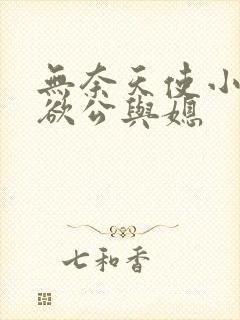 無奈天使小
欲公與媳
七和香